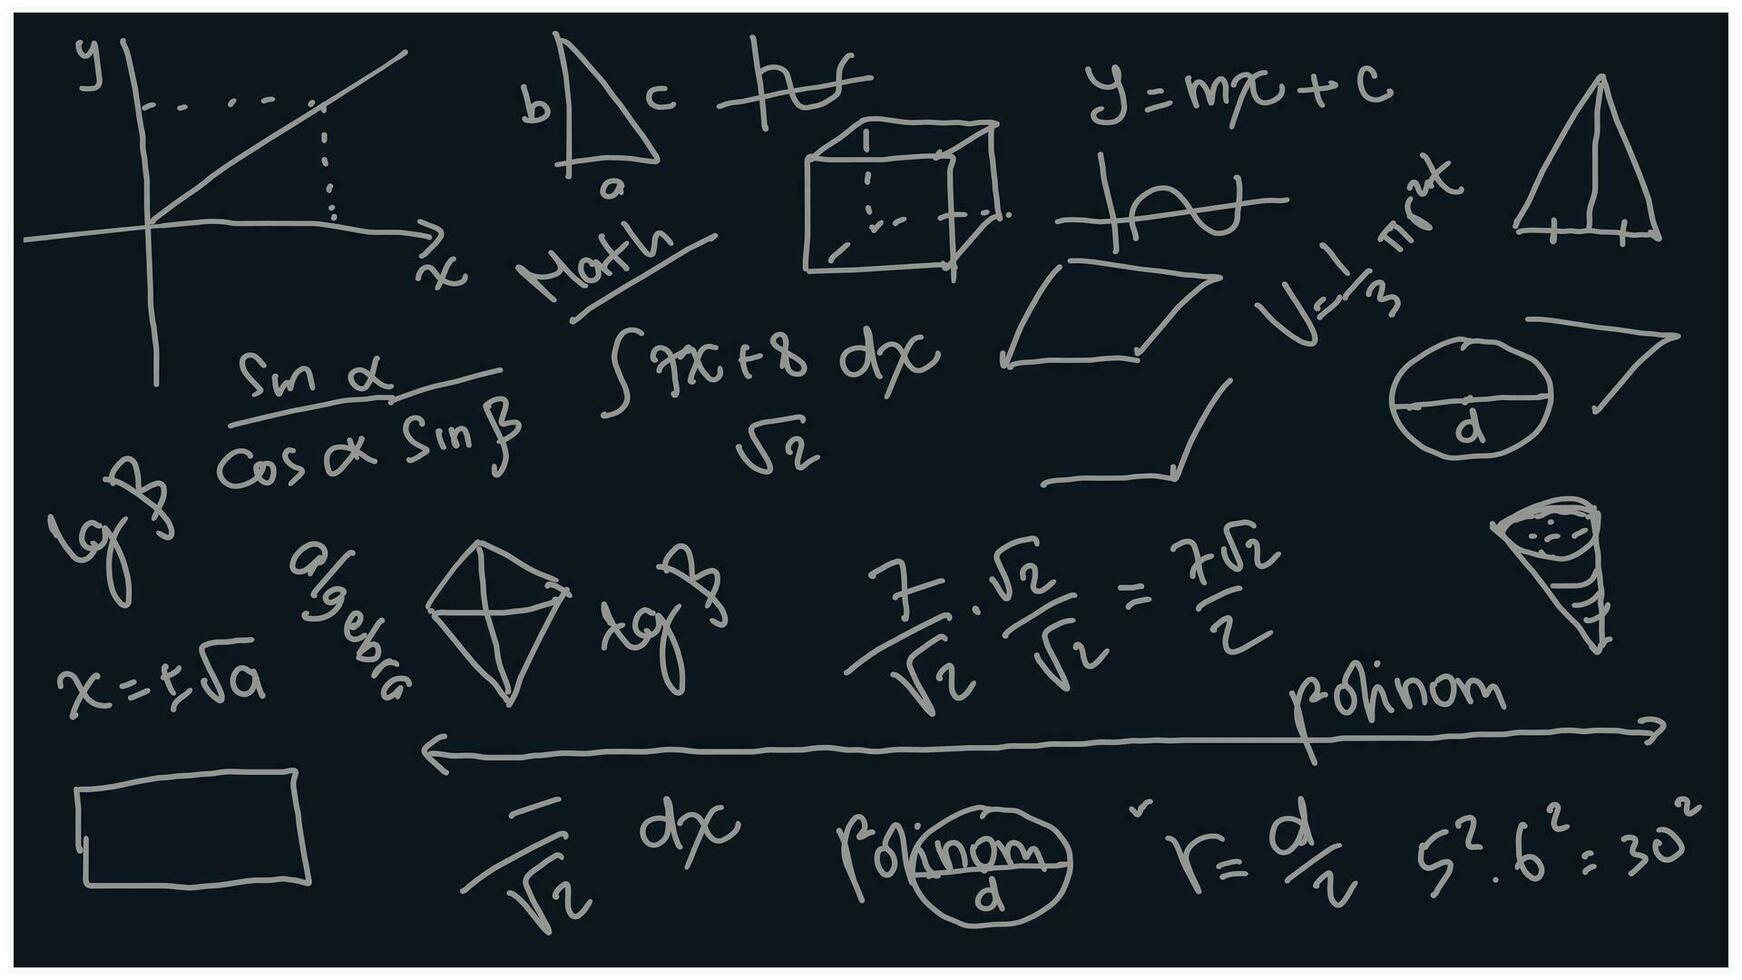 y
b
c
a
x
y = mx + c
Math
V = 1/3 πr²t
sin α
cos α sin β
∫ 7x + 8 dx
√2
d
lg β
algebra
tg β
7/√2 . √2/√2 = 7√2/2
x = ±√a
polinom
√2
dx
polinom
d
r = d/2
5² . 6² = 30²